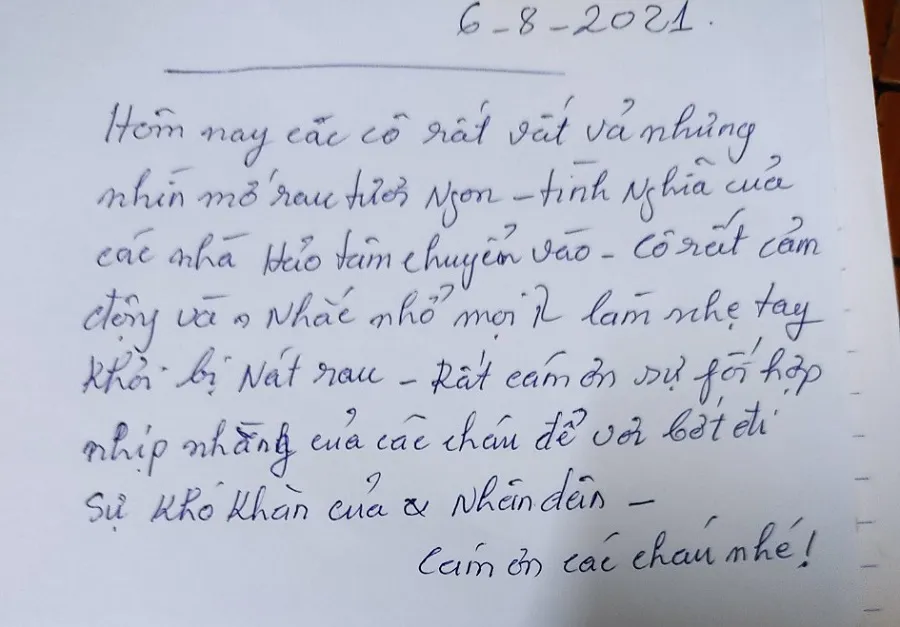 6-8-2021.
Hôm nay các cô rất vất vả nhưng
nhìn mớ rau tươi Ngon - tình Nghĩa của
các nhà Hảo tâm chuyển vào - Cô rất cảm
động và Nhắc nhở mọi làm nhẹ tay
Khỏi bị Nát rau - Rất cám ơn sự fối hợp
nhịp nhàng của các cháu để vơi bớt đi
Sự Khó Khăn của Nhân dân -
Cám ơn các cháu nhé!